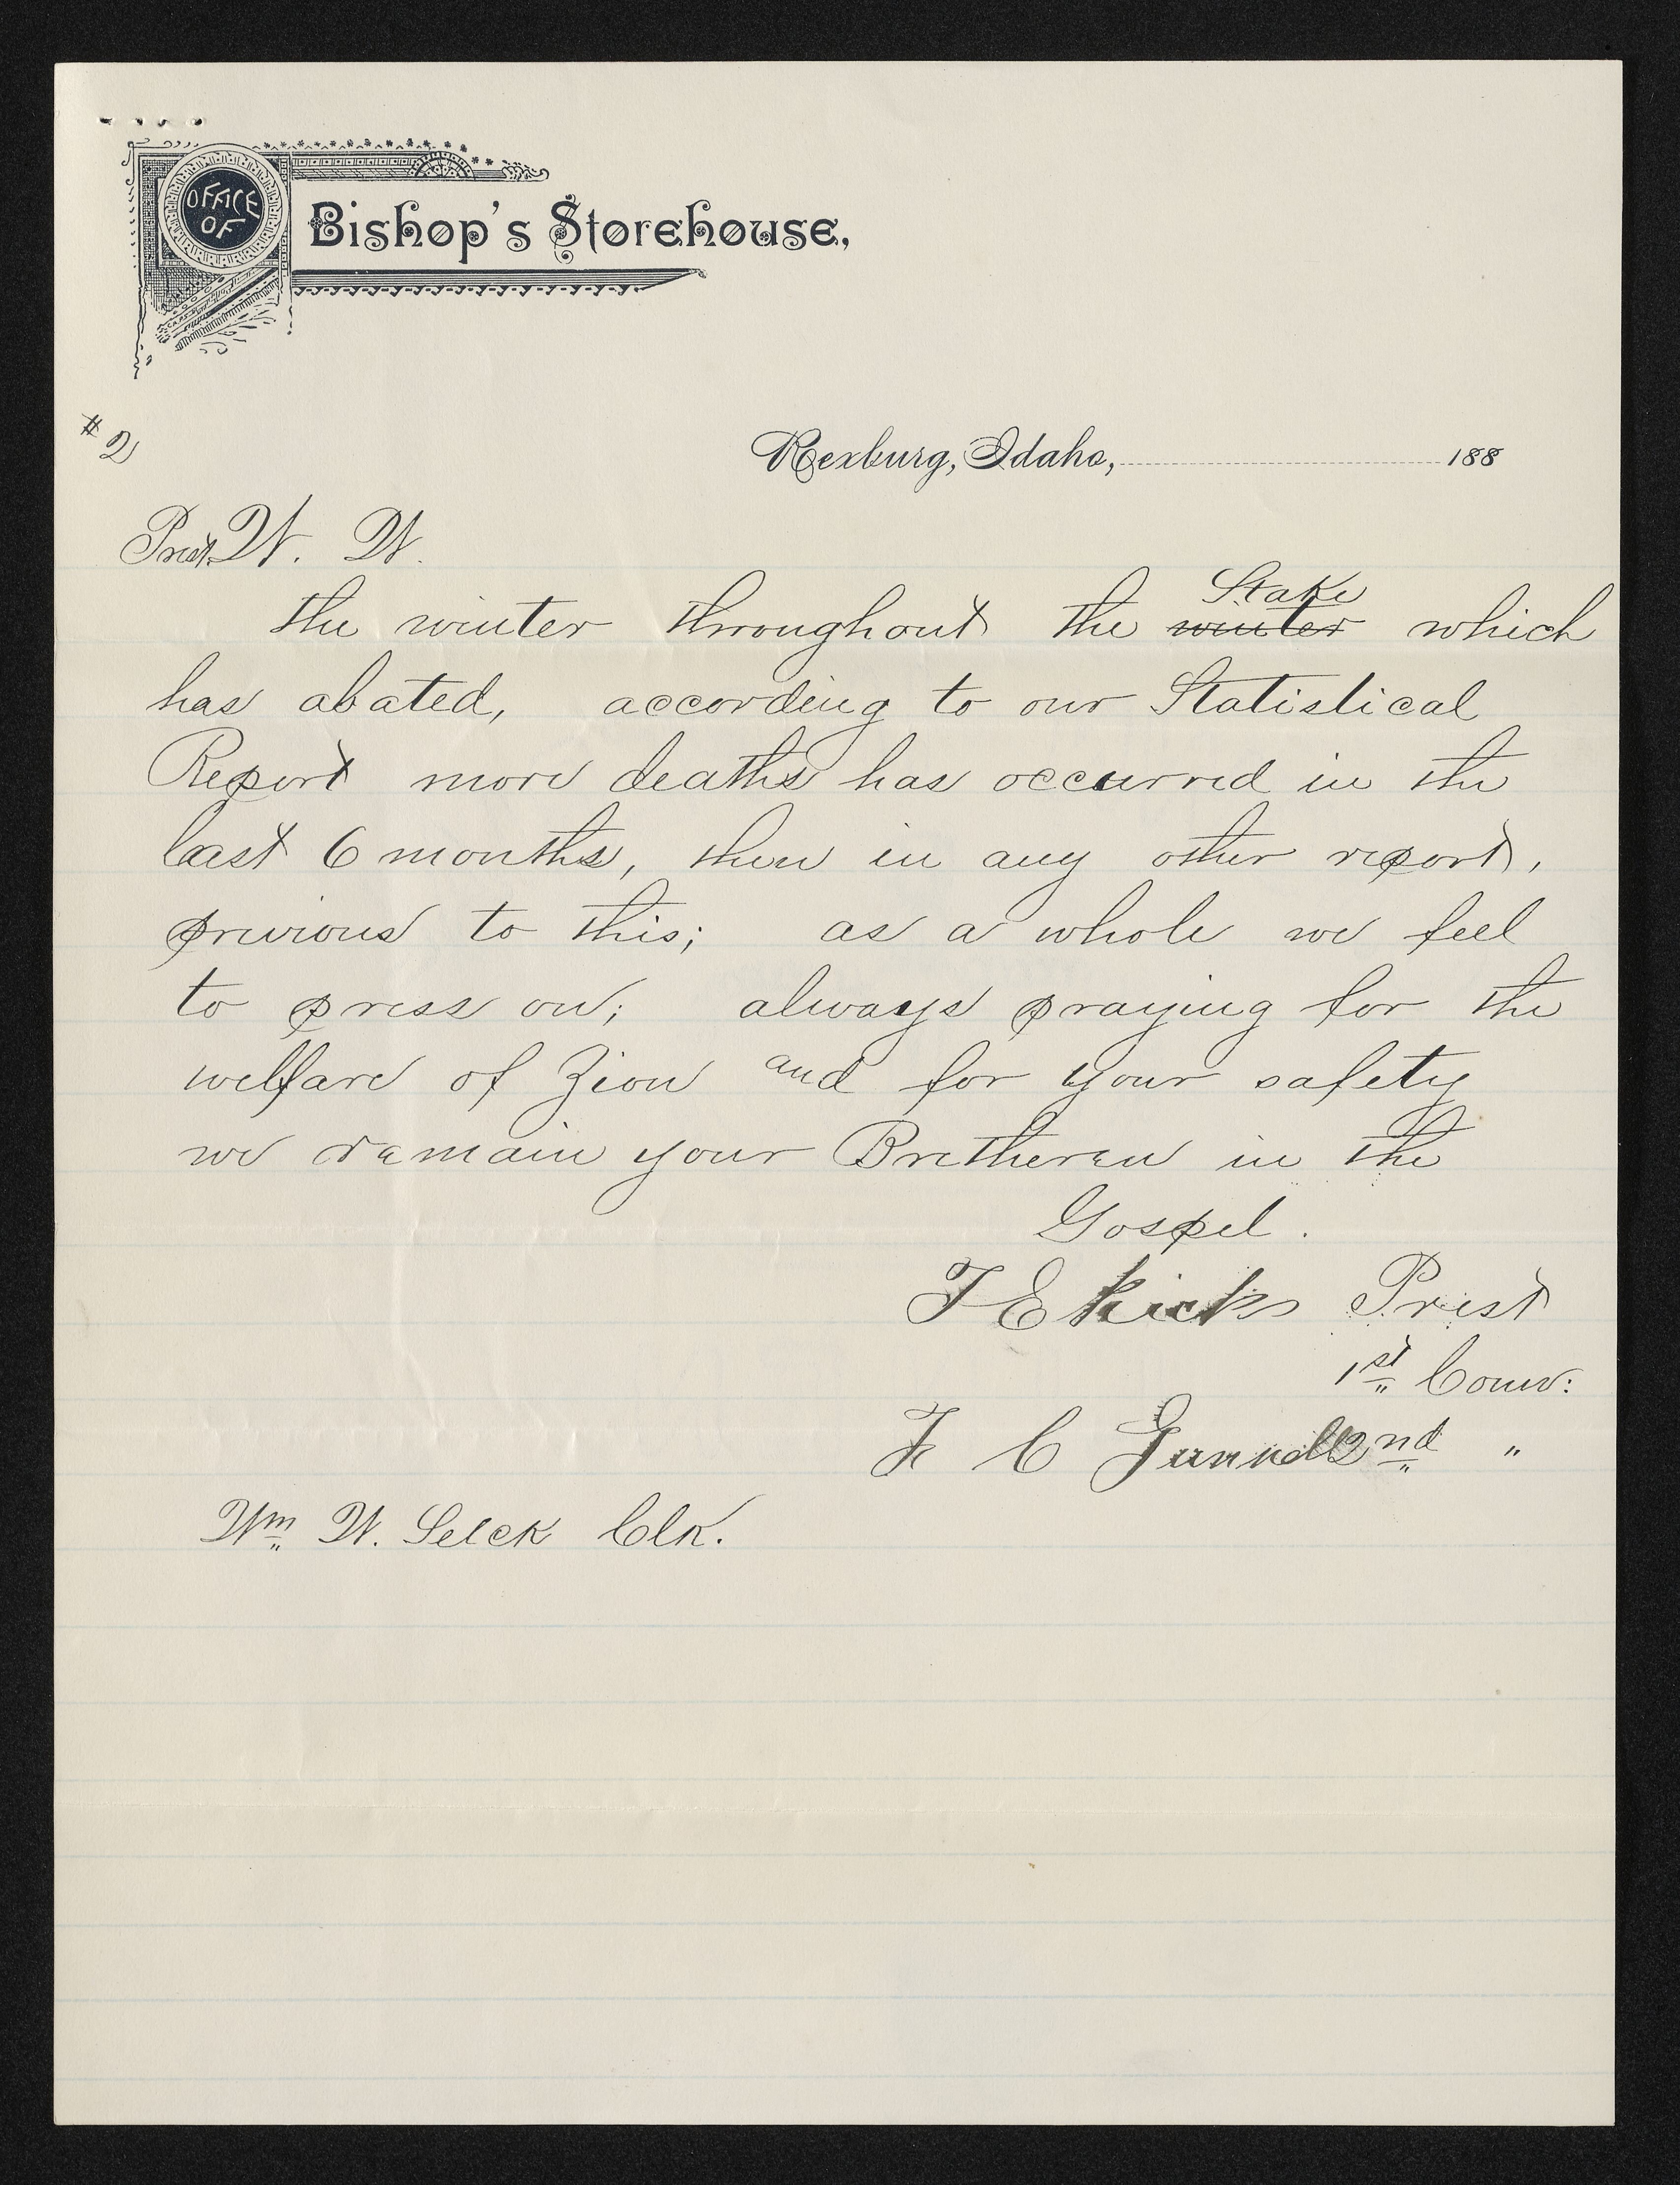 OFFICE
OF
Bishop's Storehouse,
#2
Rexburg, Idaho, 188
Prest. W. W.
the winter throughout the winter Stake which
has abated, according to our Statistical
Report more deaths has occurred in the
last 6 months, then in any other report,
previous to this; as a whole we feel
to press on; always praying for the
welfare of Zion and for your safety
we remain your Bretheren in the
Gospel.
T E Ricks Prest
1st Coun:
F C Gunnell 2nd "
Wm W. Selck Clk.